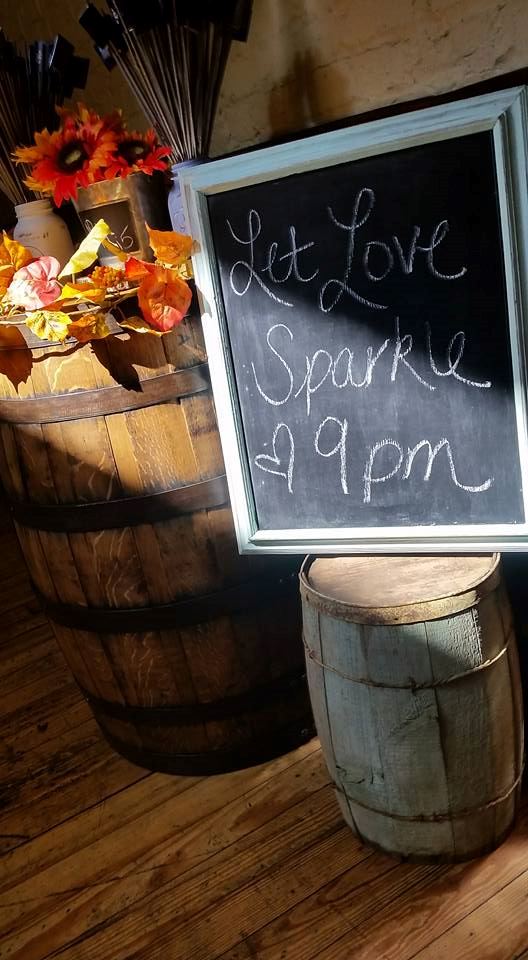 Let Love
Sparkle
♡ 9pm